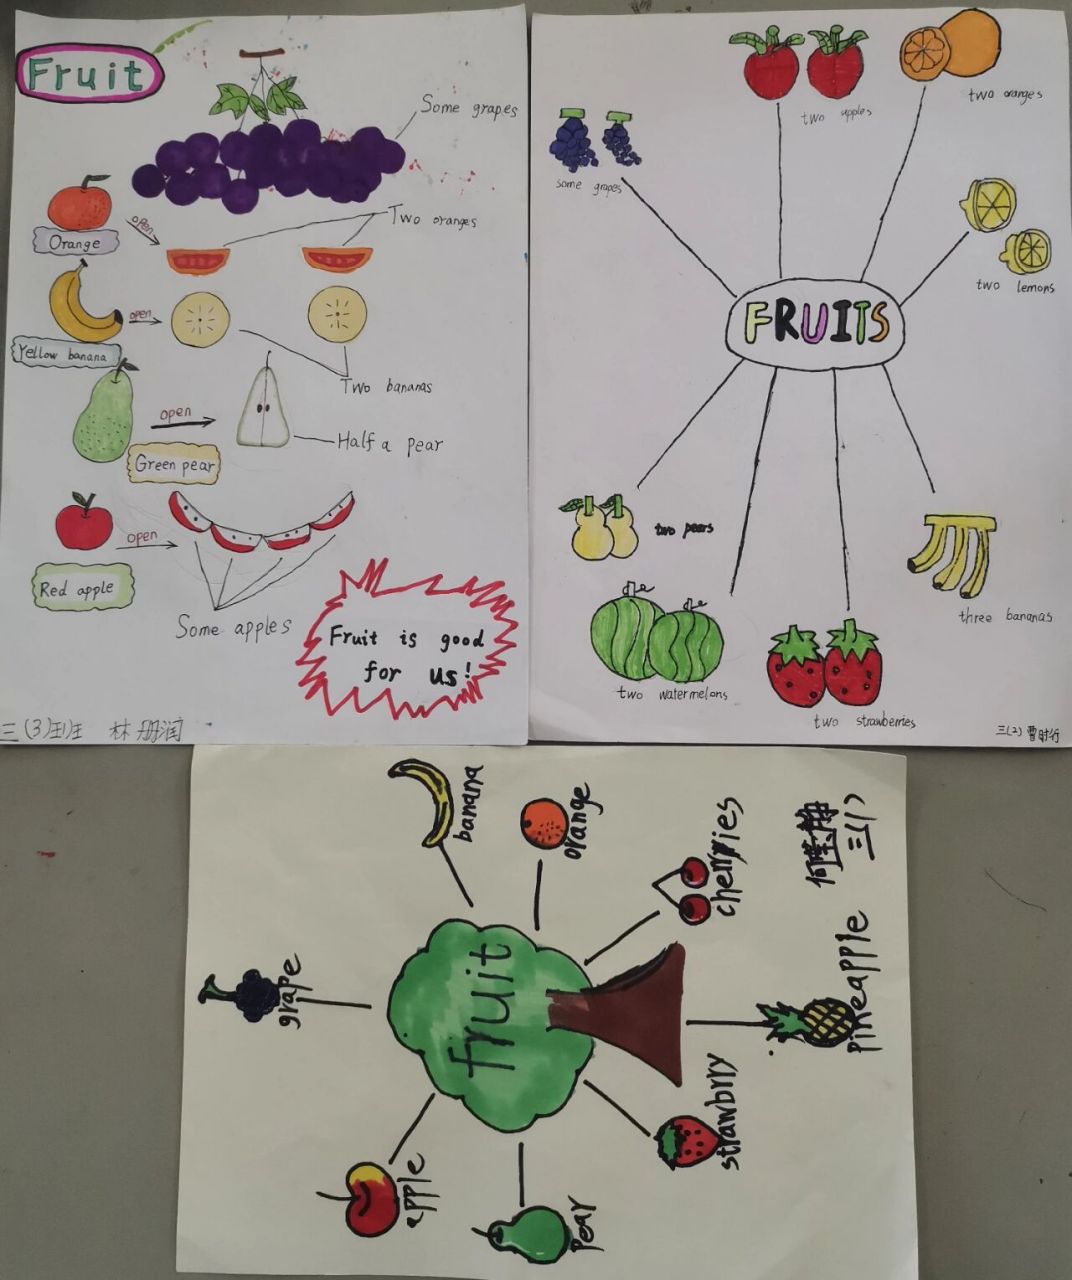 Fruit
Some grapes
Orange
open
Two oranges
Yellow banana
open
Two bananas
open
Half a pear
Green pear
open
Red apple
Some apples
Fruit is good
for us!
三(3)班
some grapes
two apples
two oranges
two lemons
FRUITS
two pears
two watermelons
two strawberries
three bananas
三(2) 曹时行
banana
orange
cherries
三(1)
pineapple
strawbrry
pear
apple
grape
fruit